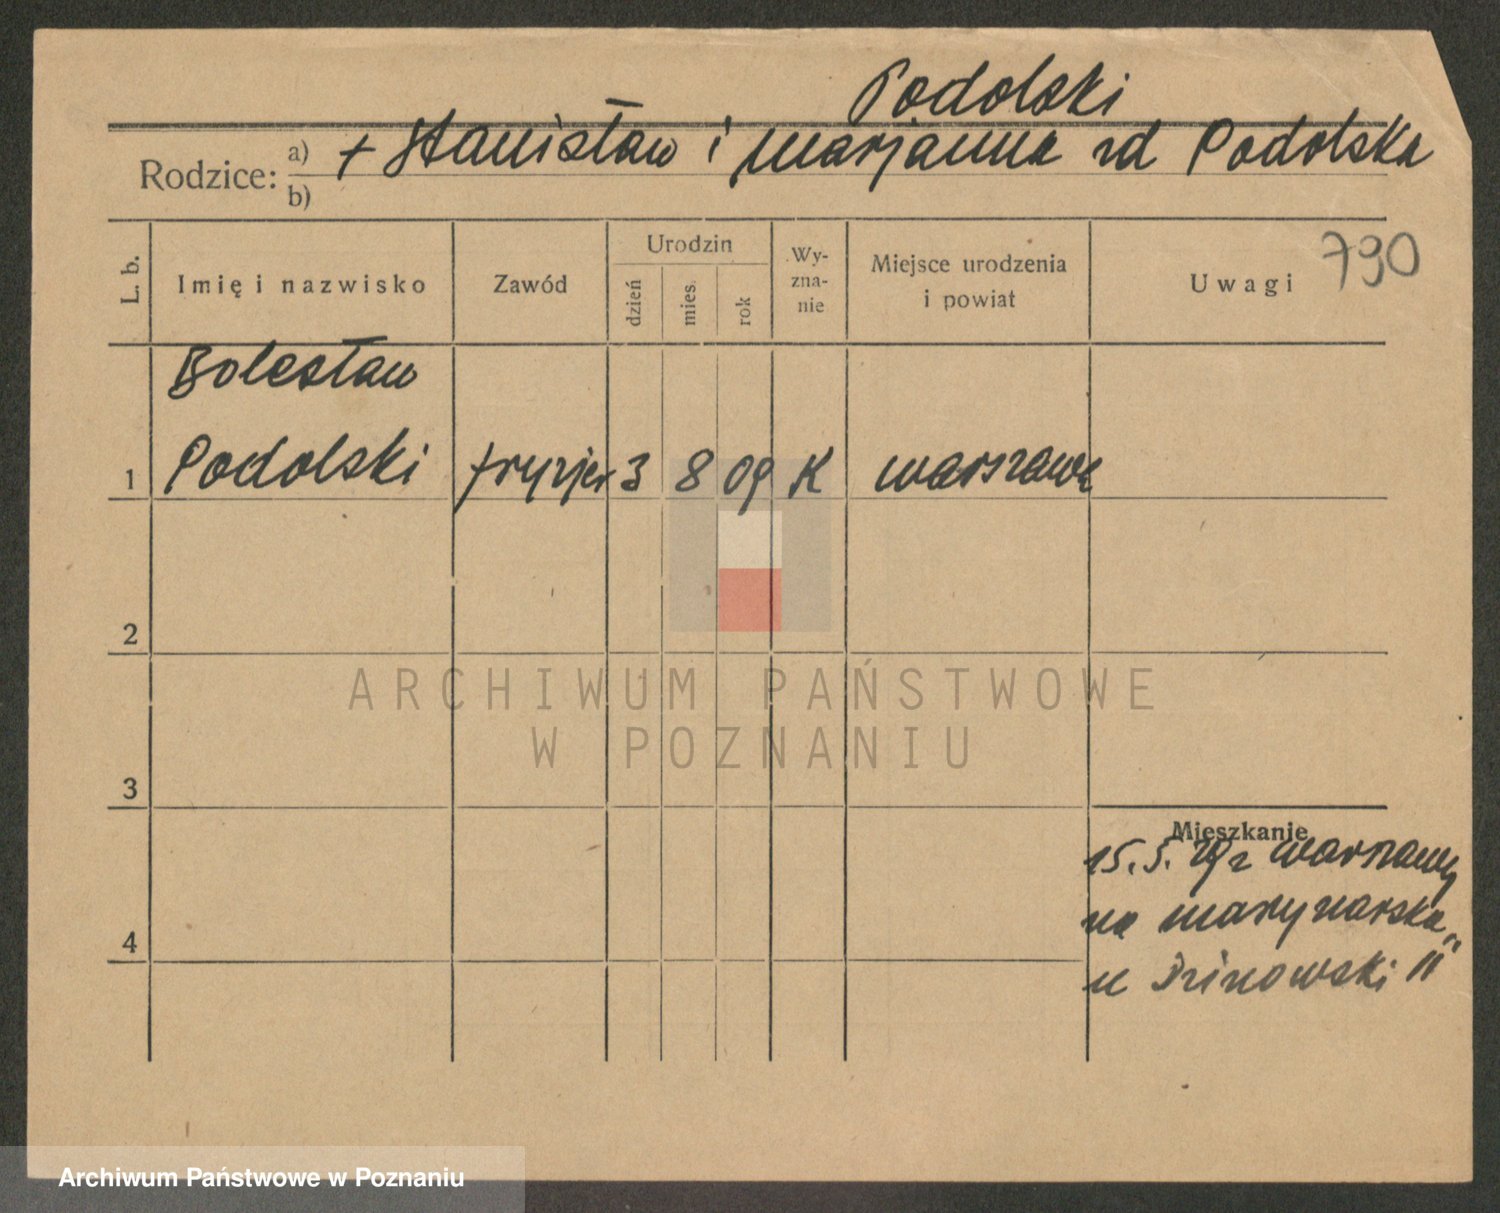 Podolski
Rodzice: a) + Stanisław i Marjanna rd Podolska
b)
790
L. b.
Imię i nazwisko
Zawód
Urodzin
dzień
mies.
rok
Wy-
zna-
nie
Miejsce urodzenia
i powiat
Uwagi
Bolesław
1 Podolski fryzjer 3 8 09 K Warszawa
2
3
4
Mieszkanie
15. 5. 29 z Warszawy
na Marynarska
u
ARCHIWUM PAŃSTWOWE
W POZNANIU
Archiwum Państwowe w Poznaniu